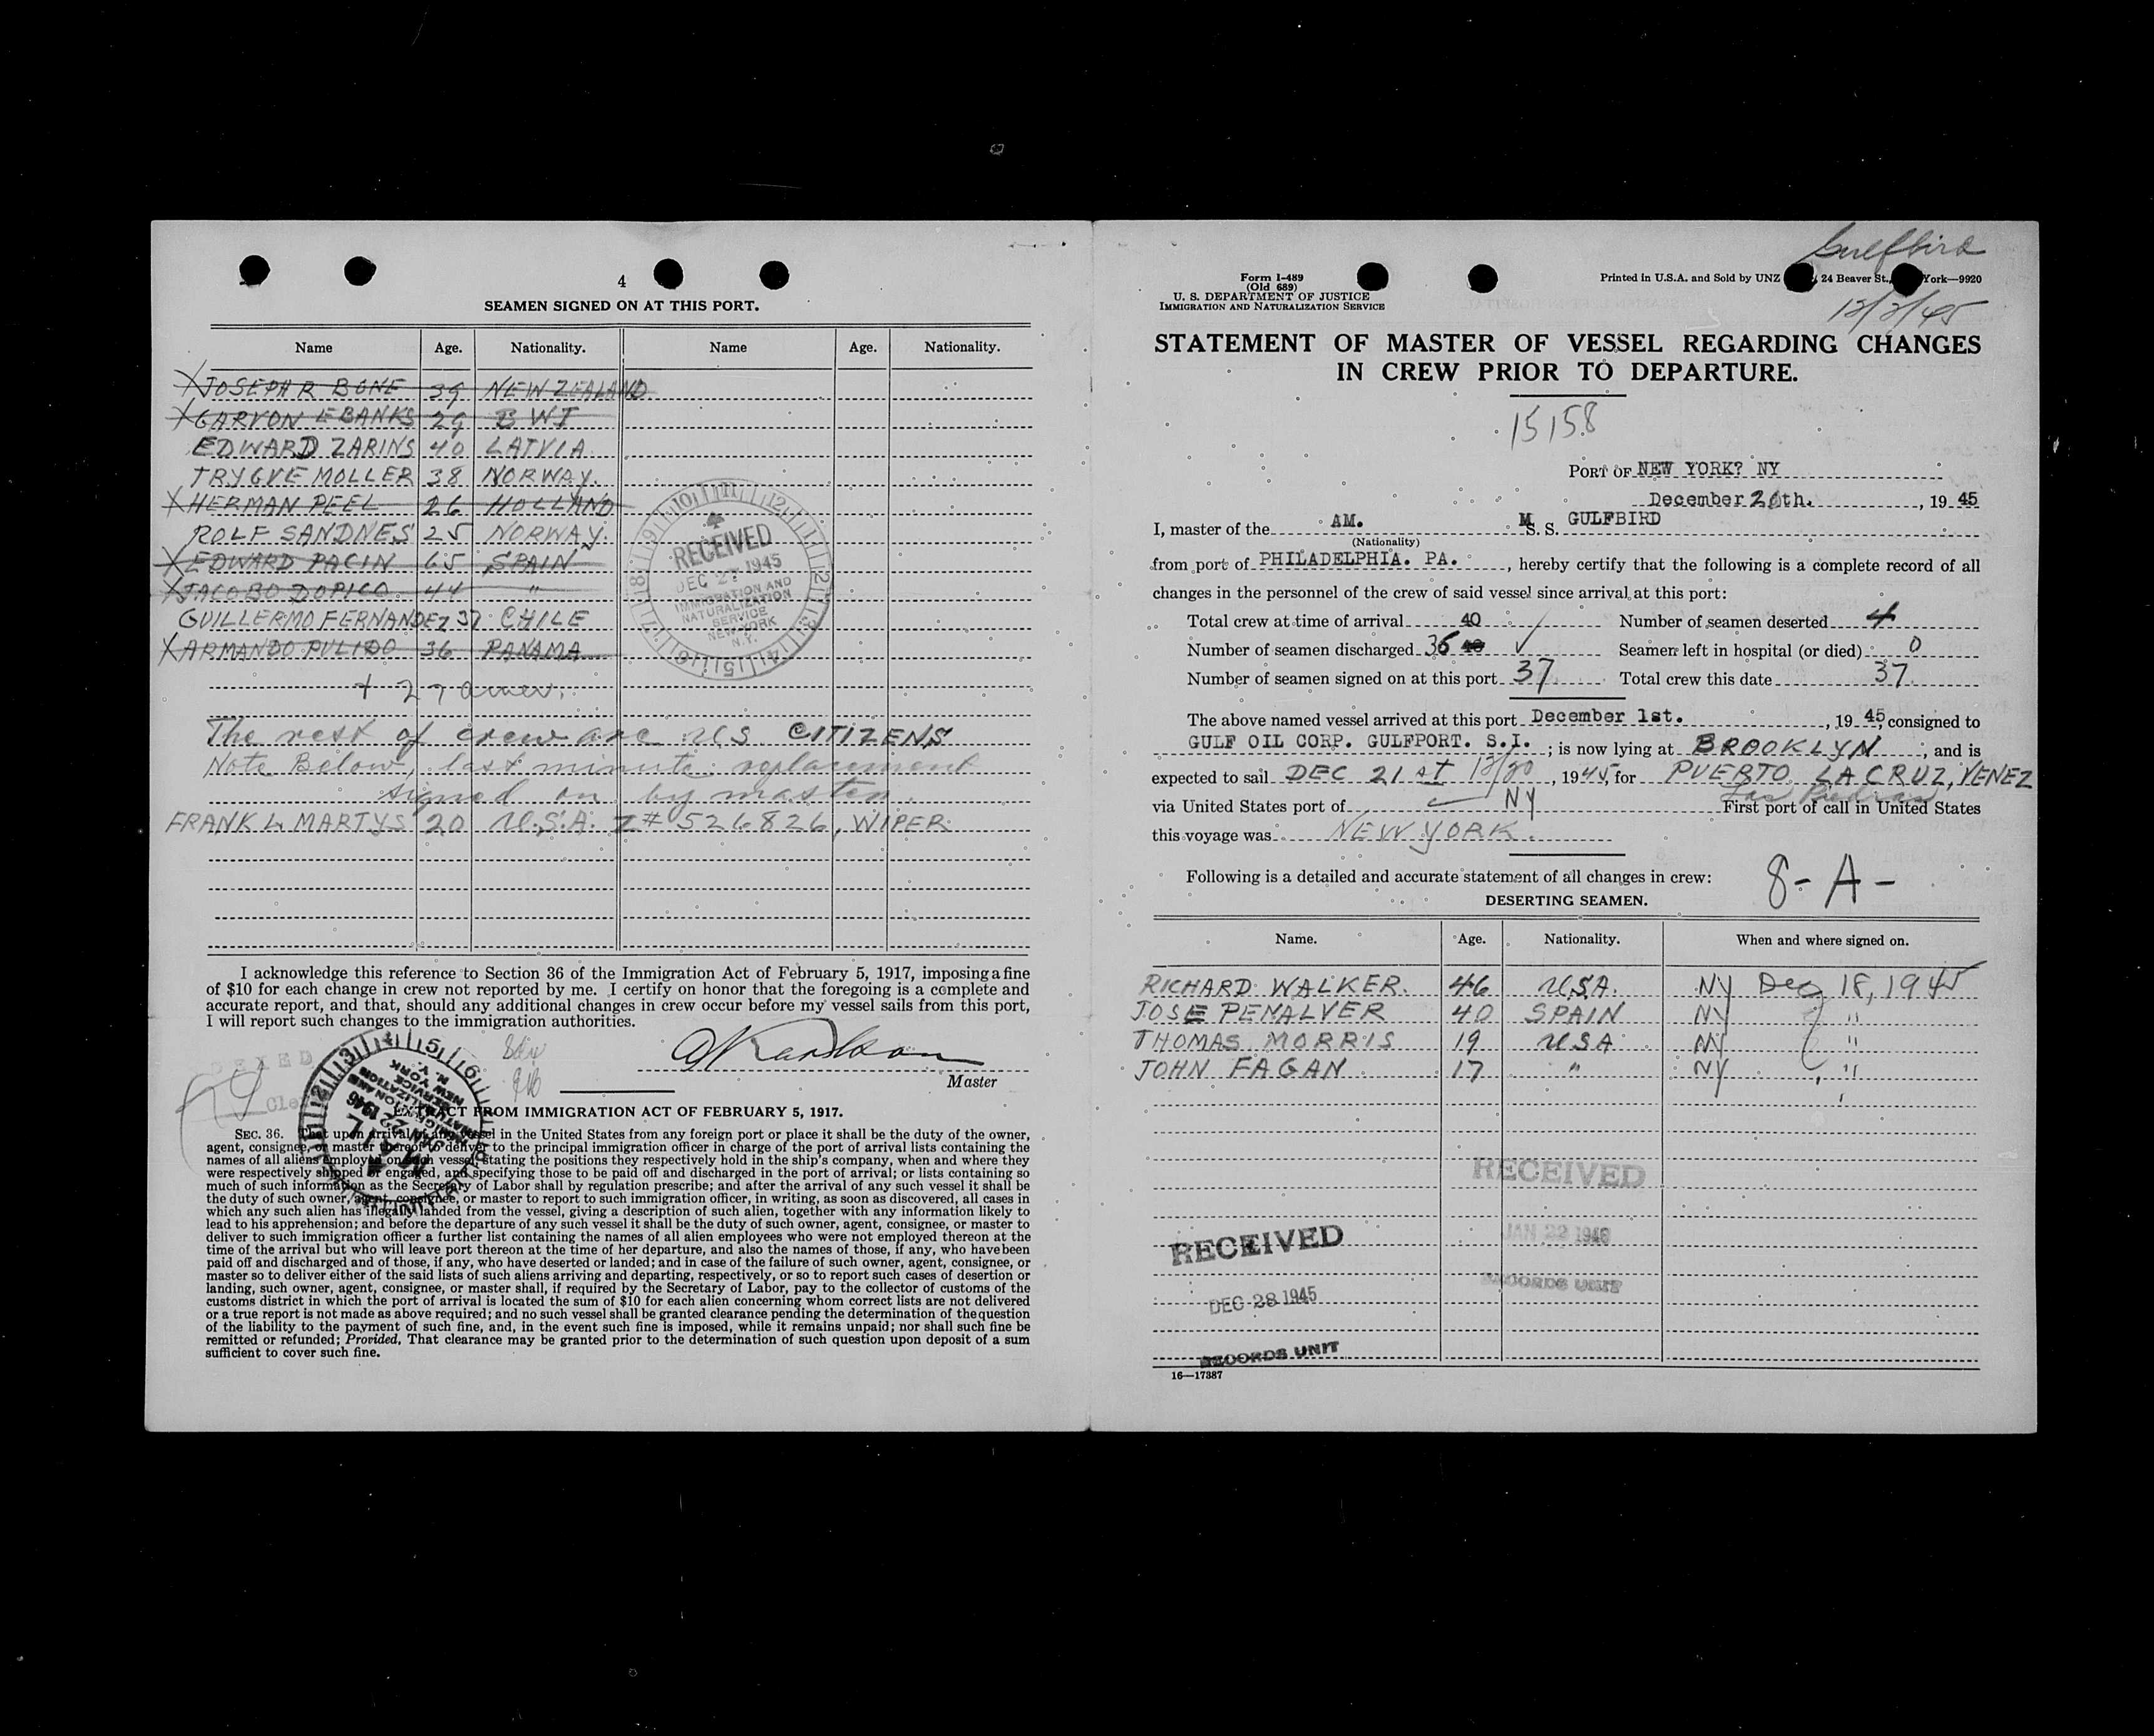 4
SEAMEN SIGNED ON AT THIS PORT.
Name Age. Nationality. Name Age. Nationality.
X JOSEPH R BONE 39 NEW ZEALAND
X GARVON EBANKS 29 B W I
EDWARD ZARINS 40 LATVIA
TRYGVE MOLLER 38 NORWAY.
X HERMAN PEEL 26 HOLLAND
ROLF SANDNES 25 NORWAY.
X EDWARD PACIN 65 SPAIN
X JACOBO DOPICO 44 "
GUILLERMO FERNANDEZ 37 CHILE
X ARMANDO PULIDO 36 PANAMA
+ 27 amer.
The rest of crew are U.S CITIZENS
Note Below, last minute replacement
signed on by master.
FRANK L MARTYS 20 U.S.A. Z# 526826, WIPER
RECEIVED
DEC 27 1945
IMMIGRATION AND
NATURALIZATION
SERVICE
NEW YORK
N.Y.
I acknowledge this reference to Section 36 of the Immigration Act of February 5, 1917, imposing a fine
of $10 for each change in crew not reported by me. I certify on honor that the foregoing is a complete and
accurate report, and that, should any additional changes in crew occur before my vessel sails from this port,
I will report such changes to the immigration authorities.
Master
EXTRACT FROM IMMIGRATION ACT OF FEBRUARY 5, 1917.
SEC. 36. That upon arrival of any vessel in the United States from any foreign port or place it shall be the duty of the owner,
agent, consignee, or master thereof to deliver to the principal immigration officer in charge of the port of arrival lists containing the
names of all aliens employed on such vessel, stating the positions they respectively hold in the ship's company, when and where they
were respectively shipped or engaged, and specifying those to be paid off and discharged in the port of arrival; or lists containing so
much of such information as the Secretary of Labor shall by regulation prescribe; and after the arrival of any such vessel it shall be
the duty of such owner, agent, consignee, or master to report to such immigration officer, in writing, as soon as discovered, all cases in
which any such alien has illegally landed from the vessel, giving a description of such alien, together with any information likely to
lead to his apprehension; and before the departure of any such vessel it shall be the duty of such owner, agent, consignee, or master to
deliver to such immigration officer a further list containing the names of all alien employees who were not employed thereon at the
time of the arrival but who will leave port thereon at the time of her departure, and also the names of those, if any, who have been
paid off and discharged and of those, if any, who have deserted or landed; and in case of the failure of such owner, agent, consignee, or
master so to deliver either of the said lists of such aliens arriving and departing, respectively, or so to report such cases of desertion or
landing, such owner, agent, consignee, or master shall, if required by the Secretary of Labor, pay to the collector of customs of the
customs district in which the port of arrival is located the sum of $10 for each alien concerning whom correct lists are not delivered
or a true report is not made as above required; and no such vessel shall be granted clearance pending the determination of the question
of the liability to the payment of such fine, and, in the event such fine is imposed, while it remains unpaid; nor shall such fine be
remitted or refunded; Provided, That clearance may be granted prior to the determination of such question upon deposit of a sum
sufficient to cover such fine.
Gulfbird
12/2/45
Form I-489
(Old 689)
U. S. DEPARTMENT OF JUSTICE
IMMIGRATION AND NATURALIZATION SERVICE
Printed in U.S.A. and Sold by UNZ 24 Beaver St., York—9920
STATEMENT OF MASTER OF VESSEL REGARDING CHANGES
IN CREW PRIOR TO DEPARTURE.
15158
PORT OF NEW YORK? NY
December 20th. , 19 45
I, master of the AM. M S. S. GULFBIRD
(Nationality)
from port of PHILADELPHIA. PA. , hereby certify that the following is a complete record of all
changes in the personnel of the crew of said vessel since arrival at this port:
Total crew at time of arrival 40 Number of seamen deserted 4
Number of seamen discharged 36 40 ✓ Seamen left in hospital (or died) 0
Number of seamen signed on at this port 37 Total crew this date 37
The above named vessel arrived at this port December 1st. , 19 45, consigned to
GULF OIL CORP. GULFPORT. S.I. ; is now lying at BROOKLYN , and is
expected to sail DEC 21st 12/20 , 1945, for PUERTO LA CRUZ, VENEZ
Las Piedras
via United States port of NY First port of call in United States
this voyage was NEW YORK.
Following is a detailed and accurate statement of all changes in crew: 8-A-
DESERTING SEAMEN.
Name. Age. Nationality. When and where signed on.
RICHARD WALKER. 46 U.S.A. NY Dec 18, 1945
JOSE PENALVER 40 SPAIN NY "
THOMAS MORRIS 19 USA NY "
JOHN FAGAN 17 " NY "
RECEIVED
JAN 22 1946
RECORDS UNIT
RECEIVED
DEC 28 1945
RECORDS UNIT
16—17387